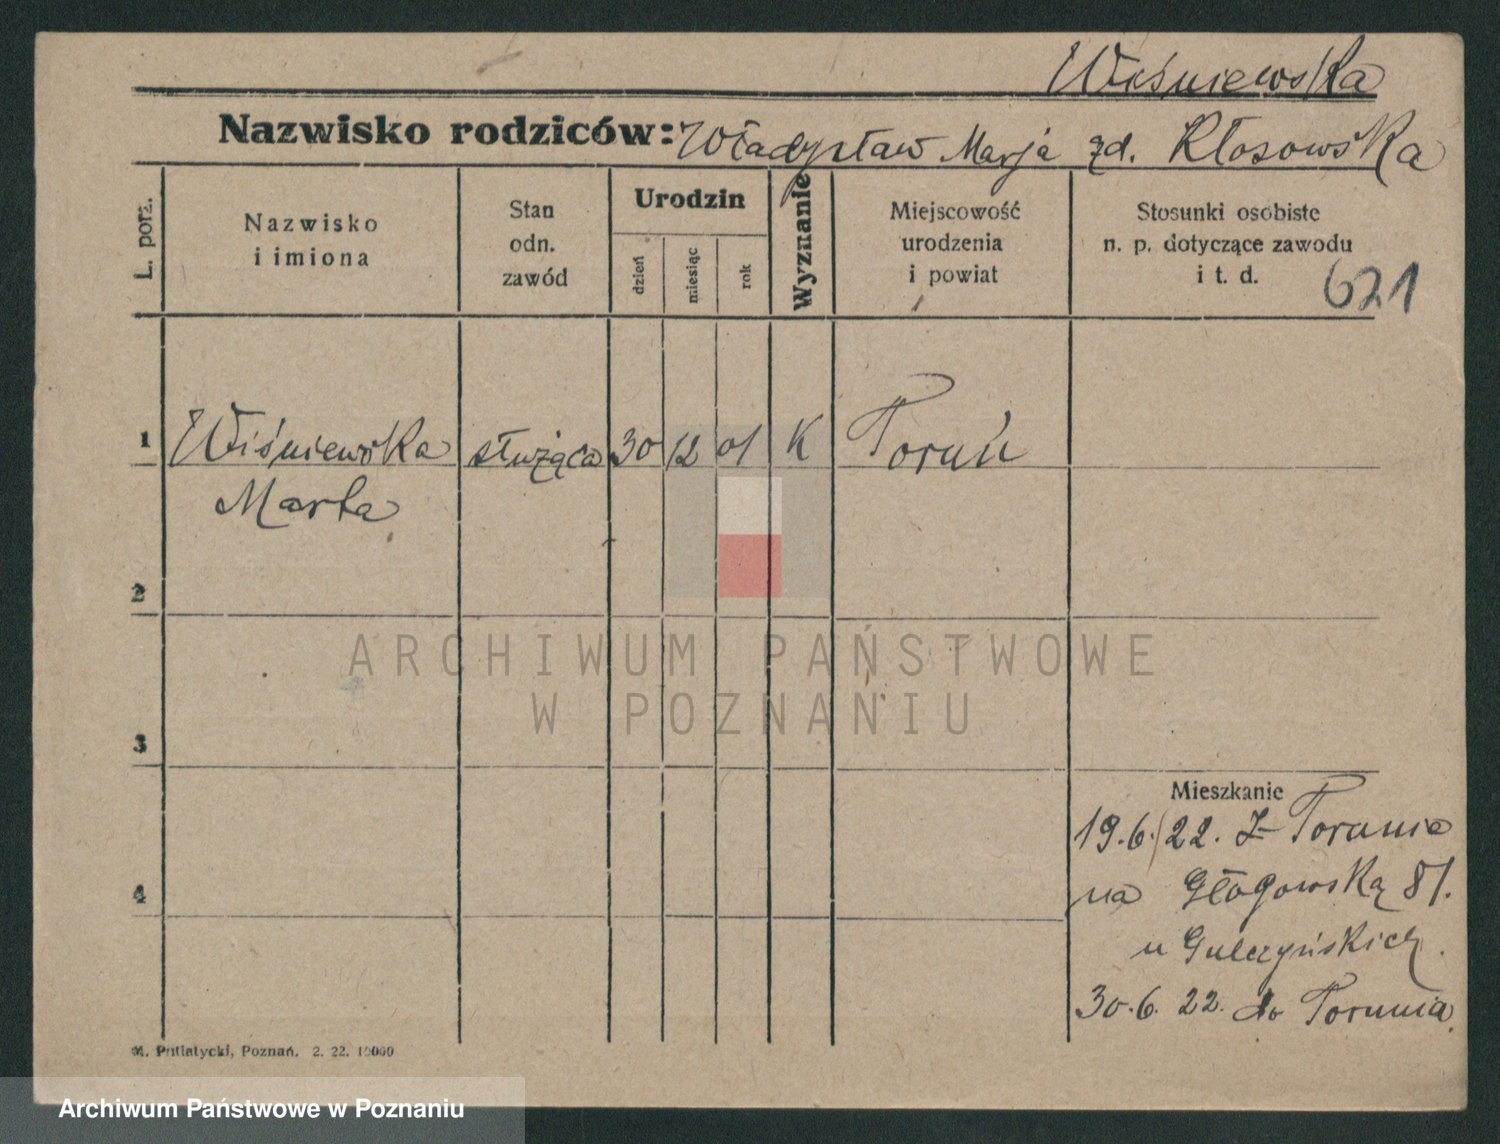 Wiśniewska
Nazwisko rodziców: Władysław Marja zd. Kłosowska
L. porz.
Nazwisko
i imiona
Stan
odn.
zawód
Urodzin
dzień
miesiąc
rok
Wyznanie
Miejscowość
urodzenia
i powiat
Stosunki osobiste
n. p. dotyczące zawodu
i t. d.
621
1 Wiśniewska służąca 30 12 01 K Toruń
Marta
2
ARCHIWUM PAŃSTWOWE
W POZNANIU
3
Mieszkanie
19.6./22. Z Torunia
na Głogowską 81.
4
u Gulczyńskich.
30.6.22. do Torunia.
M. Putiatycki, Poznań. 2. 22. 10000
Archiwum Państwowe w Poznaniu